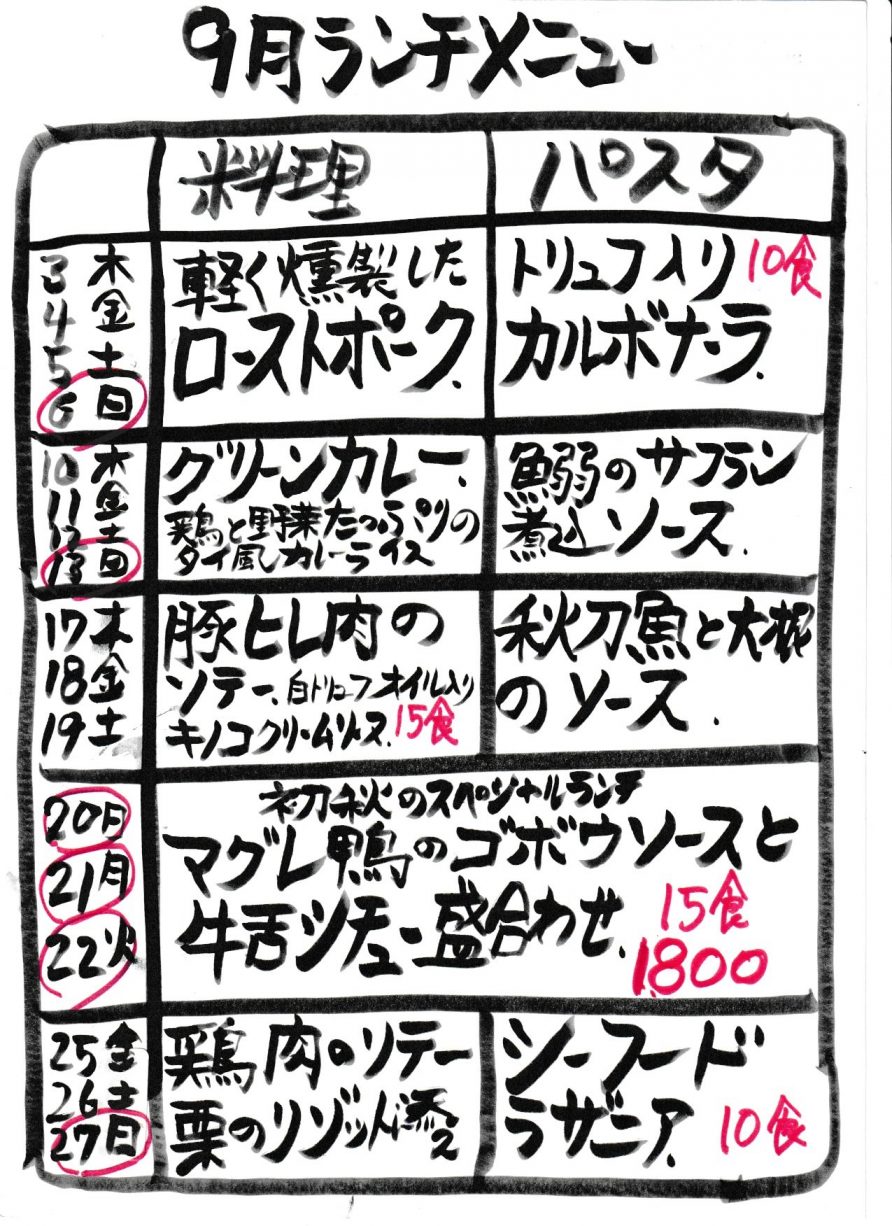 9月ランチメニュー
料理
パスタ
3 木
4 金
5 土
6 日
軽く燻製した
ローストポーク.
トリュフ入り 10食
カルボナーラ.
10 木
11 金
12 土
13 日
グリーンカレー.
鶏と野菜たっぷりの
タイ風カレーライス
魚弱のサフラン
煮込ソース.
17 木
18 金
19 土
豚ヒレ肉の
ソテー.白トリュフオイル入り
キノコクリームソース. 15食
秋刀魚と大根
のソース.
20日
21月
22火
初秋のスペシャルランチ
マグレ鴨のゴボウソースと
牛舌シチュー盛合わせ. 15食
1,800
25 金
26 土
27 日
鶏肉のソテー
栗のリゾット添え
シーフード
ラザニア. 10食